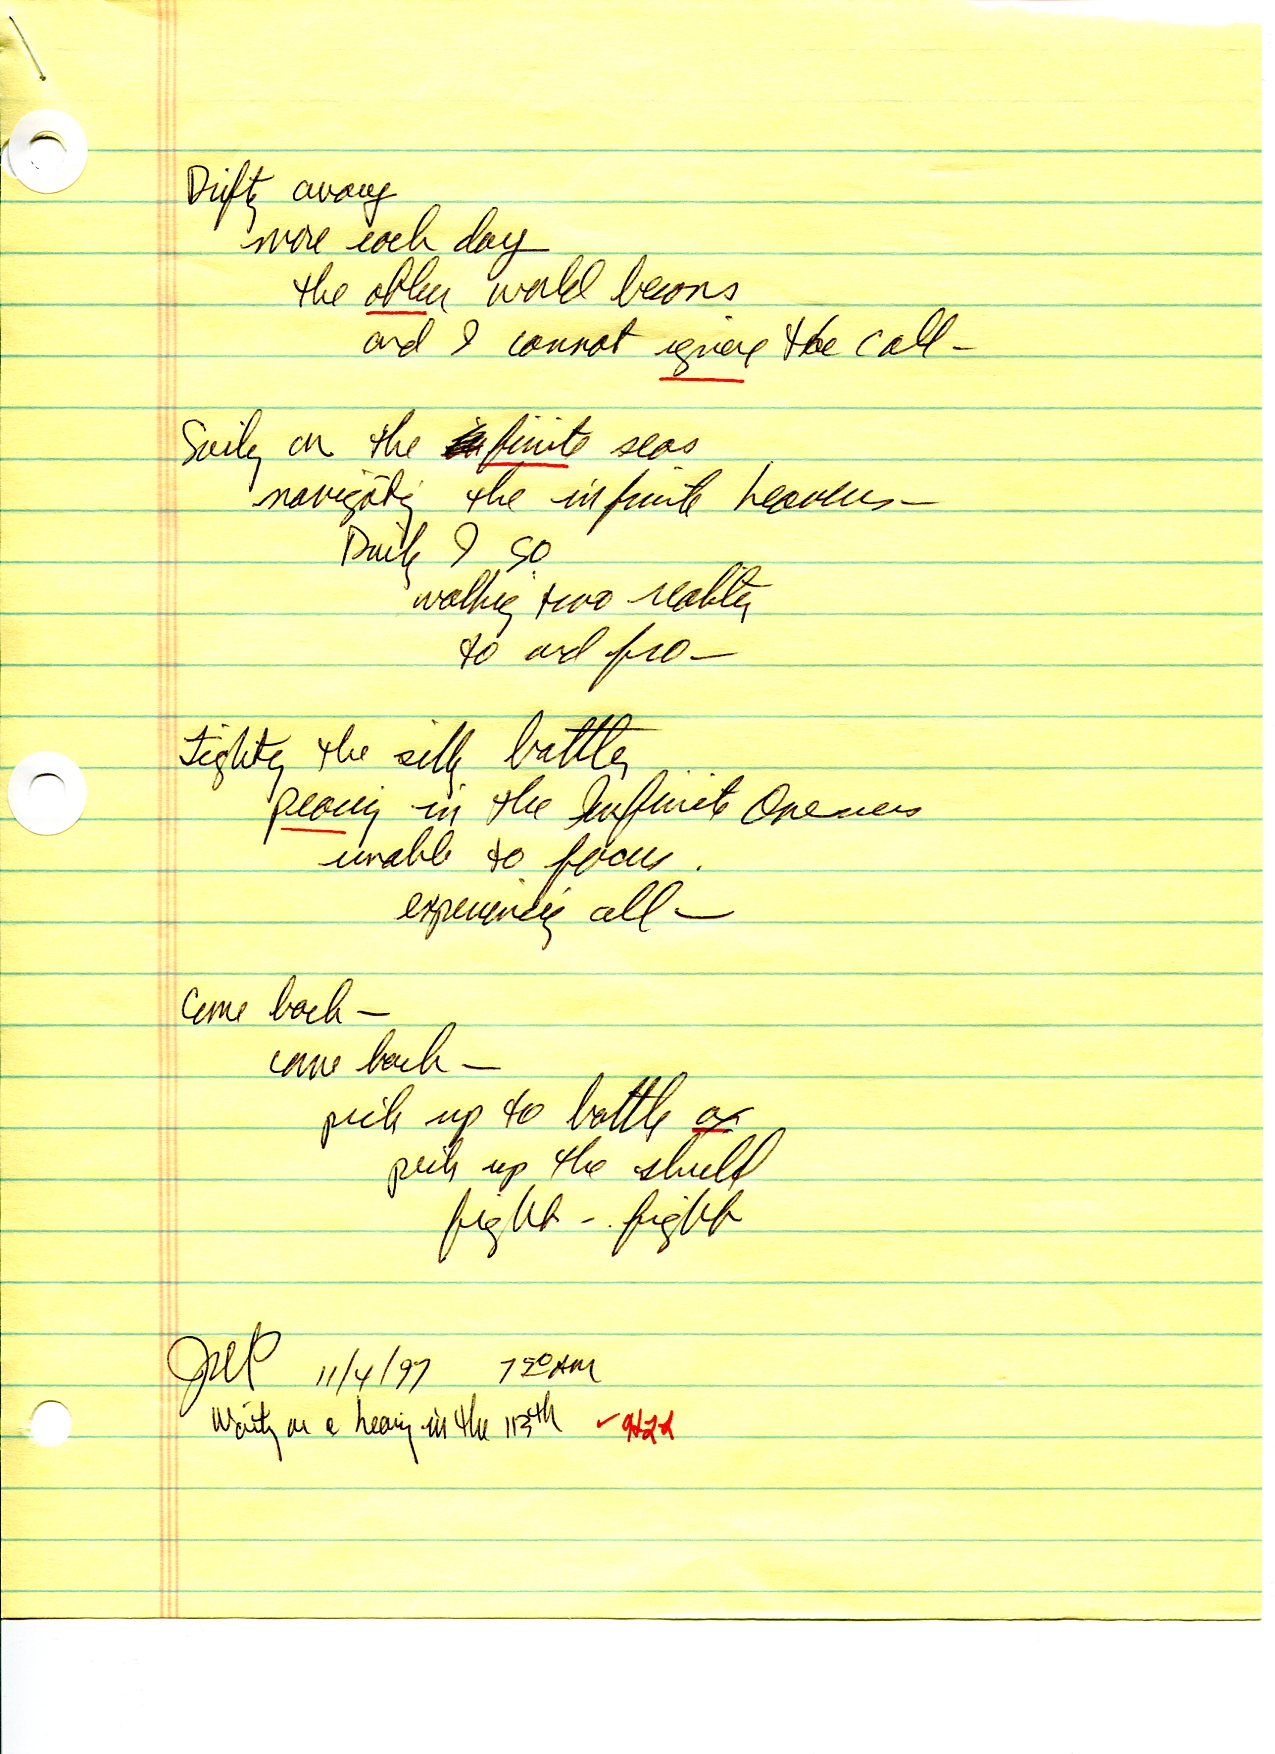 Drifting away
more each day
the other world becons
and I cannot ignore the call -
Sailing on the finite seas
navigating the infinite heavens -
Daily I go
walking two realities
to and fro -
Fighting the silly battles
in the Infinite Oneness
unable to focus.
experiencing all -
Come back -
come back -
pick up to battle ax
pick up the shield
fight - fight
11/4/97 7 50 AM
Waiting on a hearing in the 113th